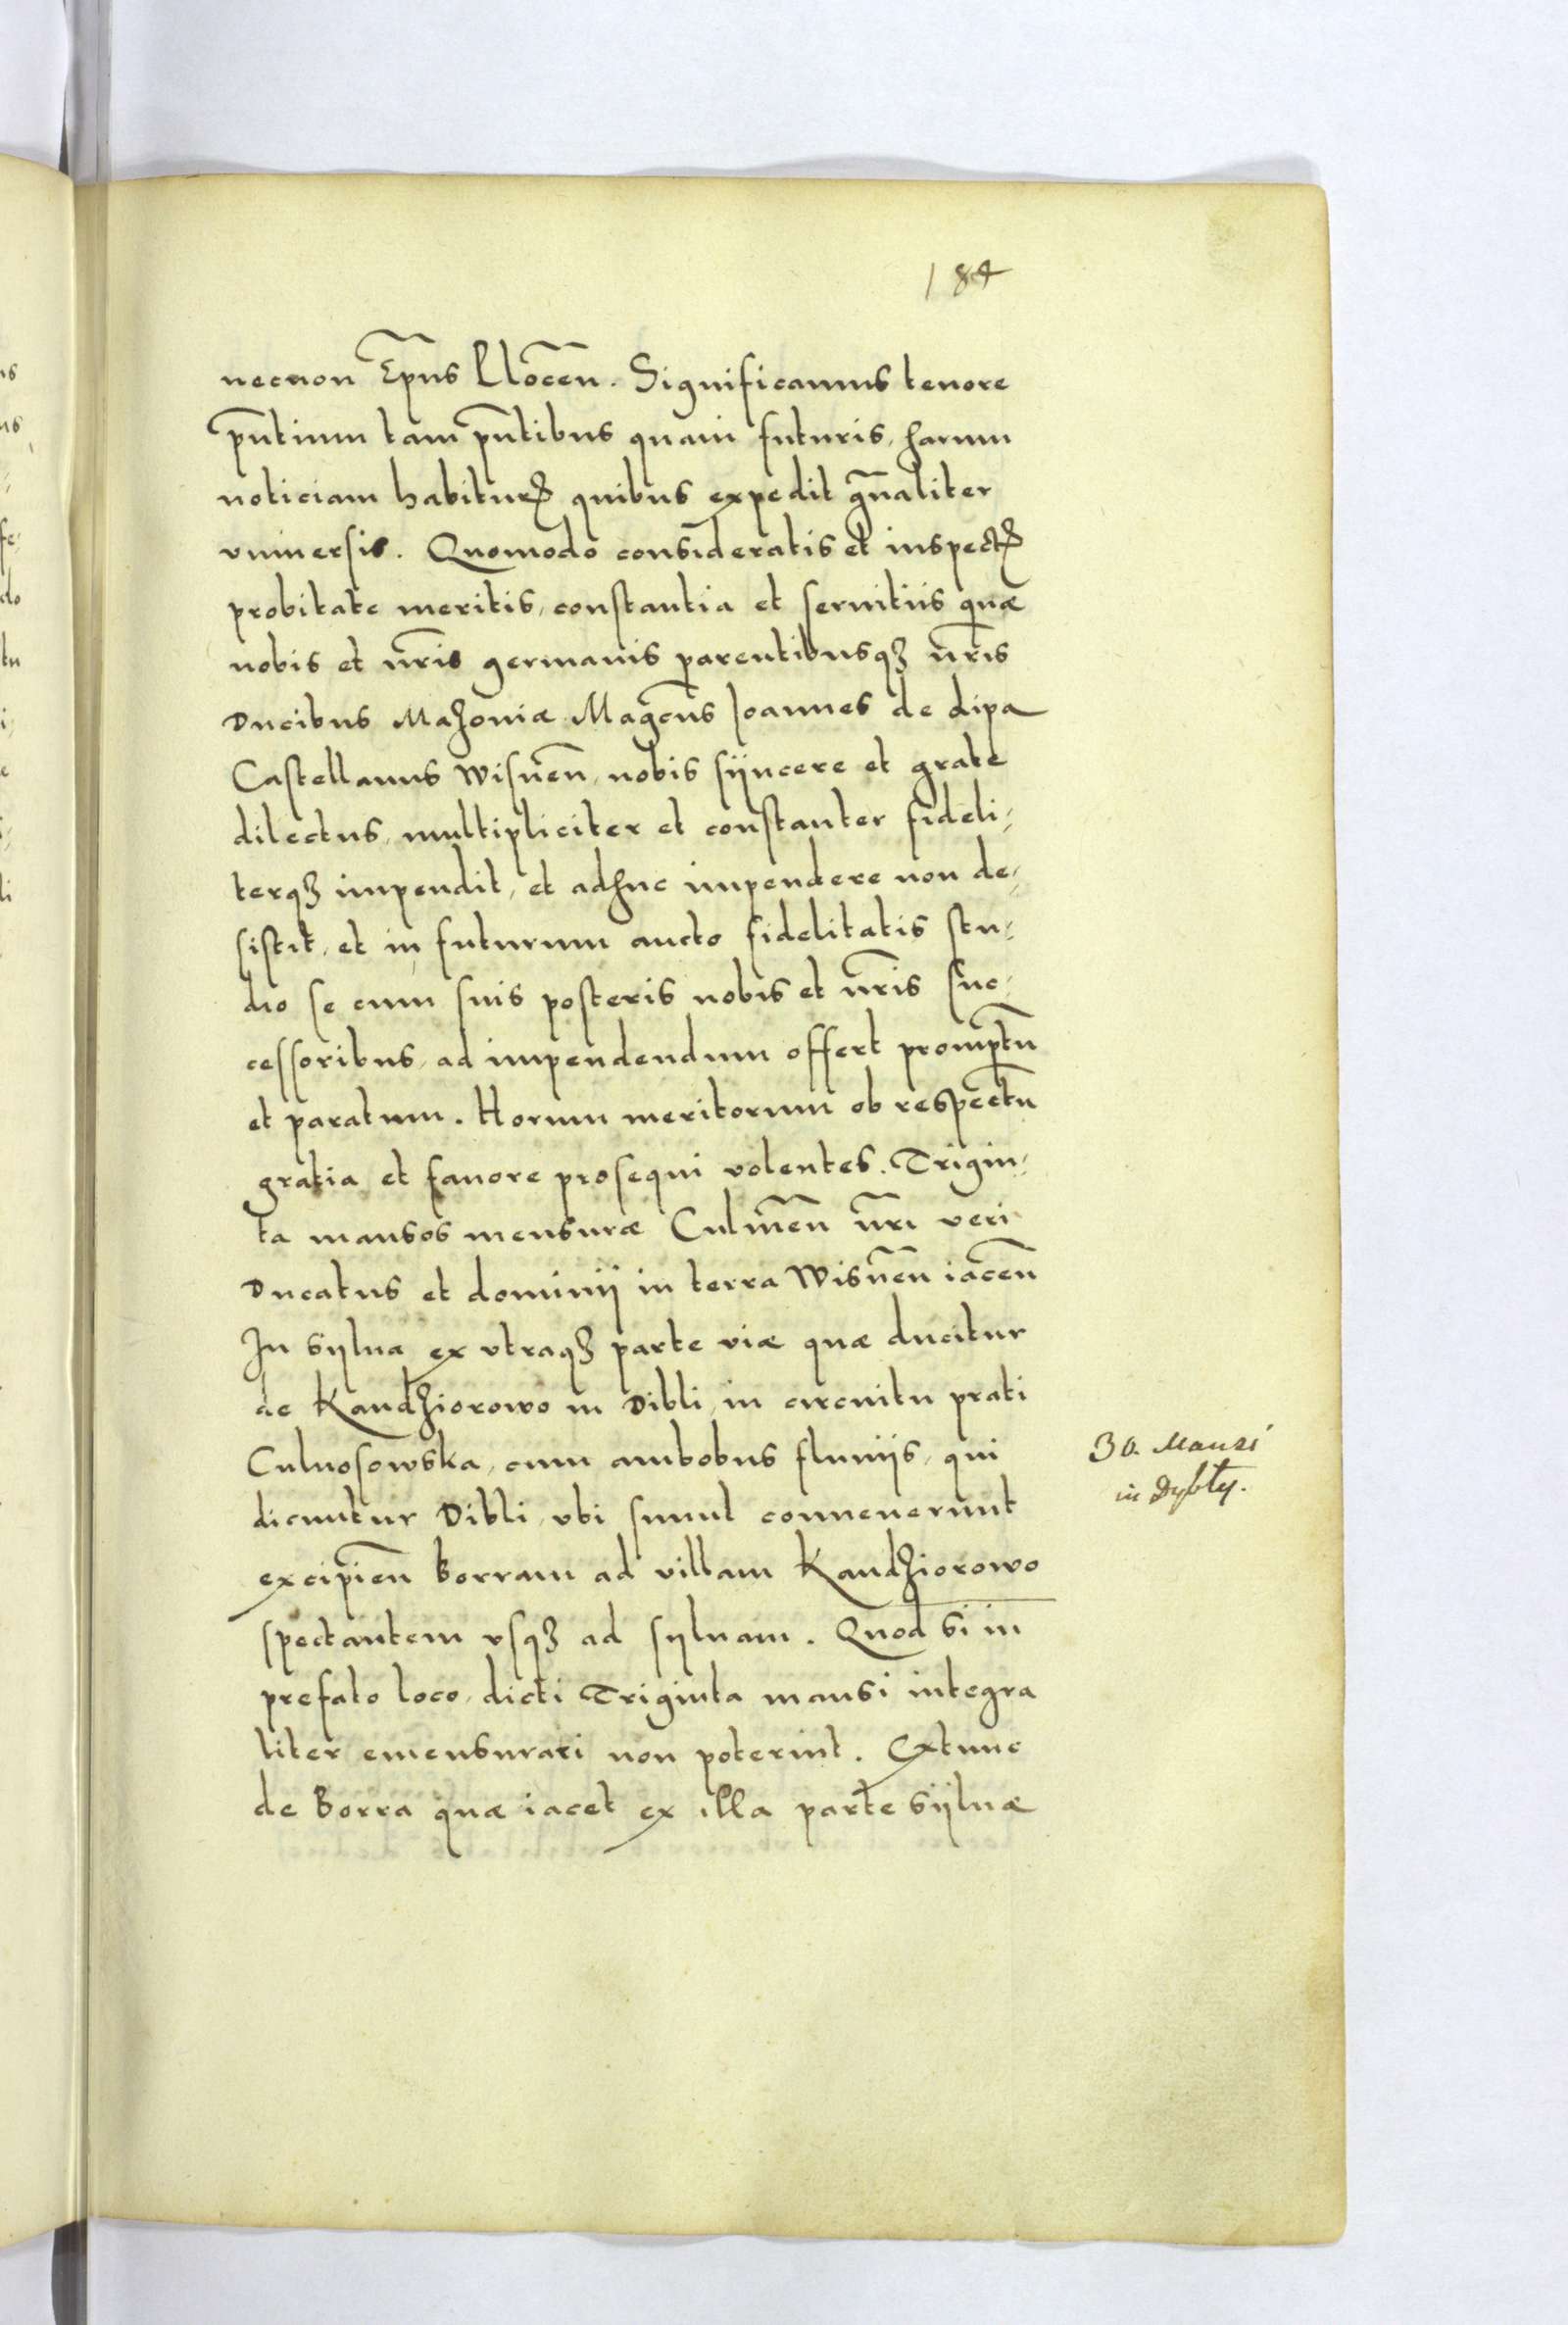 184
necnon Ep̃us Plocẽn. Significamus tenore
pñtium tam pñtibus quam futuris, harum
noticiam habiturꝝ quibus expedit gñaliter
vniuersis. Quomodo consideratis et inspectꝭ
probitate meritis, constantia et seruitiis quæ
nobis et nr̃is germanis parentibusqꝫ nr̃is
Ducibus Mazouiæ Magcũs Joannes de Lipa
Castellanus Wisneñ, nobis sÿncere et grate
dilectus, multipliciter et constanter fideli-
terqꝫ impendit, et adhuc impendere non de-
sistit, et in futurum aucto fidelitatis stu-
dio se cum suis posteris nobis et nr̃is suc-
cessoribus, ad impendendum offert promptũ
et paratum. Horum meritorum ob respectũ
gratia et fauore prosequi volentes. Trigin-
ta mansos mensuræ Culmeñ nr̃i veri
Ducatus et dominij in terra Wisneñ iaceñ
In sÿlua ex vtraqꝫ parte viæ quæ ducitur
de Kandziorowo in Dibli, in circuitu prati
Culnosowska, cum ambobus fluuijs, qui
dicuntur Dibli, vbi simul conuenerunt
excipieñ Borram ad villam Kandziorowo
spectantem vsqꝫ ad sÿluam. Quod si in
prefato loco, dicti Triginta mansi integra
liter emensurari non poterint. Extunc
de Borra quæ iacet ex illa parte sÿluæ
30. Mansi
in Dybły.